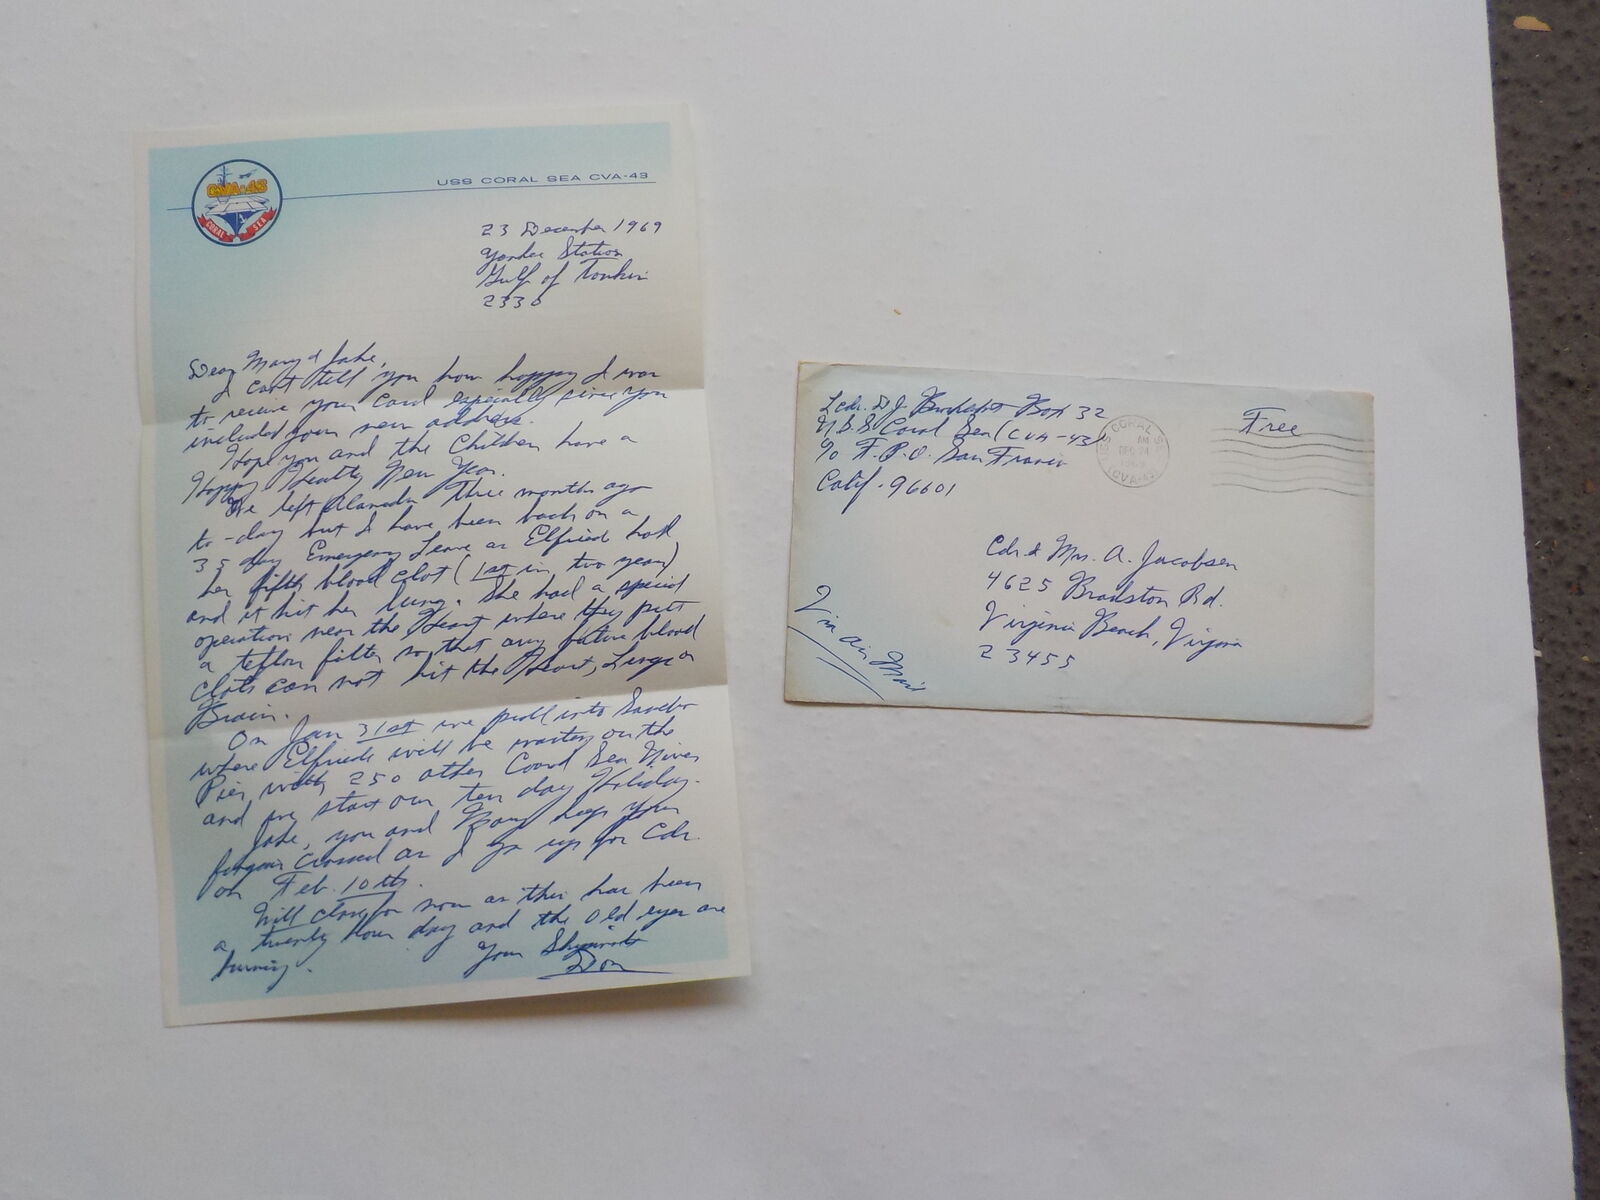 CVA-43
CORAL SEA
USS CORAL SEA CVA-43
23 December 1969
Yankee Station
Gulf of Tonkin
2330
Dear Mary & Jake,
I can't tell you how happy I was
to receive your card especially since you
included your new address.
Hope you and the Children have a
Happy Healthy New Year.
We left Alameda Three months ago
to-day but I have been back on a
35 day Emergency Leave as Elfriede had
her fifth blood clot (1st in two years)
and it hit her lung. She had a special
operation near the Heart where they put
a teflon filter so that any future blood
clots can not hit the Heart, Lungs or
Brain.
On Jan 31st we pull into
where Elfriede will be waiting on the
Pier with 250 other Coral Sea Wives
and we start our ten day Holiday.
Jake, you and Mary keep your
fingers crossed as I go up for Cdr.
on Feb. 10th.
Will close for now as this has been
a twenty hour day and the old eyes are
burning.
Your Shipmate
Don
Lcdr. D J Box 32
U.S.S Coral Sea (CVA-43)
% F.P.O. San Franci
Calif. 96601
USS CORAL SEA
AM
DEC 24
1969
(CVA-43)
Free
Cdr & Mrs. A. Jacobsen
4625 Branston Rd.
Virginia Beach, Virginia
23455
Via Air Mail